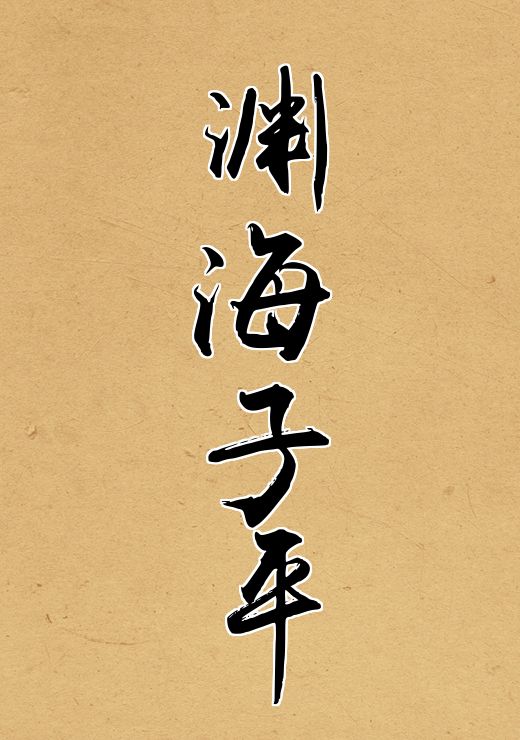 渊海子平